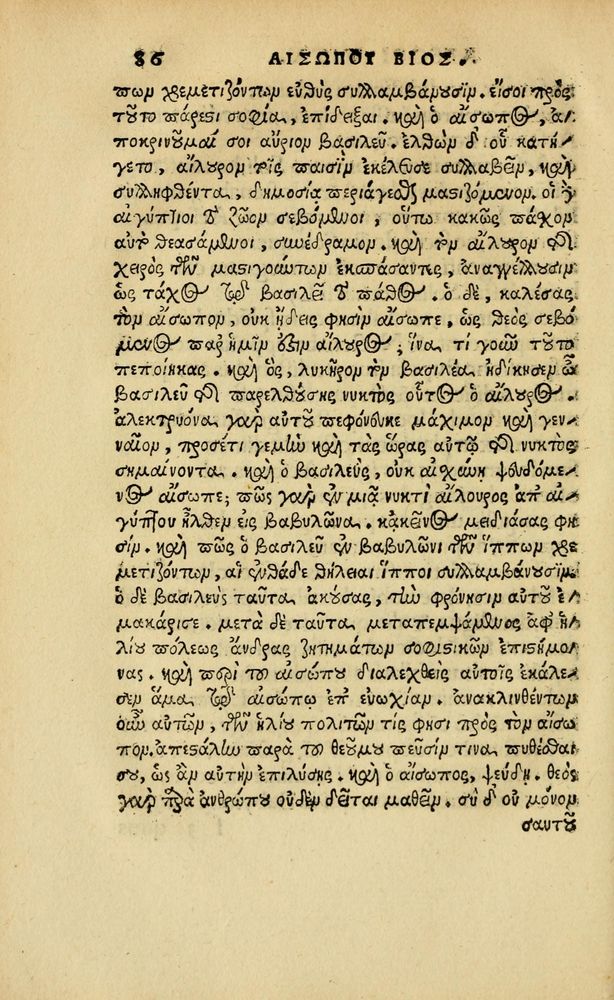 86 ΑΙΣΩΠΟΥ ΒΙΟΣ.
πων χρεμετιζόντων εὐθὺς συλλαμβάνουσιν. εἴ σοι πρὸς
τοῦτο πάρεστι σοφία, ἐπίδειξαι. καὶ ὁ αἴσωπος, ἀ-
ποκρινοῦμαί σοι αὔριον βασιλεῦ. ἐλθὼν δ' οὗ κατή-
γετο, αἴλουρον τοῖς παισὶν ἐκέλευσε συλλαβεῖν, καὶ
συλληφθέντα, δημοσίᾳ περιάγεσθαι μαστιζόμενον. οἱ δὲ
αἰγύπτιοι τὸ ζῶον σεβόμενοι, οὕτω κακῶς πάχον
αὐτὸ θεασάμενοι, συνέδραμον. καὶ τὸν αἴλουρον ἐκ
χειρὸς τῶν μαστιγούντων ἐκσπάσαντες, ἀναγγέλλουσιν
ὡς τάχος τῷ βασιλεῖ τὸ πάθος. ὁ δὲ, καλέσας
τὸν αἴσωπον, οὐκ ᾔδεις φησὶν αἴσωπε, ὡς θεὸς σεβό-
μενος παρ' ἡμῖν ἐστιν αἴλουρος; ἵνα τί γοῦν τοῦτο
πεποίηκας. καὶ ὃς, λυκῆρον τὸν βασιλέα ἠδίκησεν ὦ
βασιλεῦ τῆς παρελθούσης νυκτὸς οὗτος ὁ αἴλουρος.
ἀλεκτρυόνα γὰρ αὐτοῦ πεφόνευκε μάχιμον καὶ γεν-
ναῖον, προσέτι γε μὴν καὶ τὰς ὥρας αὐτῷ τῆς νυκτὸς
σημαίνοντα. καὶ ὁ βασιλεὺς, οὐκ αἰσχύνῃ ψευδόμε-
νος αἴσωπε; πῶς γὰρ ἐν μιᾷ νυκτὶ αἴλουρος ἀπ' αἰ-
γύπτου ἦλθεν εἰς βαβυλῶνα. κἀκεῖνος μειδιάσας φη-
σίν. καὶ πῶς ὦ βασιλεῦ ἐν βαβυλῶνι τῶν ἵππων χρε-
μετιζόντων, αἱ ἐνθάδε θήλειαι ἵπποι συλλαμβάνουσιν.
ὁ δὲ βασιλεὺς ταῦτα ἀκούσας, τὴν φρόνησιν αὐτοῦ ἐ-
μακάρισε. μετὰ δὲ ταῦτα μεταπεμψάμενος ἀφ' ἡ-
λίου πόλεως ἄνδρας ζητημάτων σοφιστικῶν ἐπιστήμο-
νας. καὶ περὶ τοῦ αἰσώπου διαλεχθεὶς αὐτοῖς ἐκάλε-
σεν ἅμα τῷ αἰσώπῳ ἐπ' εὐωχίαν. ἀνακλινθέντων
οὖν αὐτῶν, τῶν ἡλιουπολιτῶν τίς φησι πρὸς τὸν αἴσω-
πον. ἀπεστάλην παρὰ τοῦ θεοῦ μου πεῦσίν τινα πυθέσθαι
σου, ὡς ἂν αὐτὴν ἐπιλύσῃς. καὶ ὁ αἴσωπος, ψεύδῃ. θεὸς
γὰρ παρὰ ἀνθρώπου οὐδὲν δεῖται μαθεῖν. σὺ δ' οὐ μόνον
σαυτοῦ